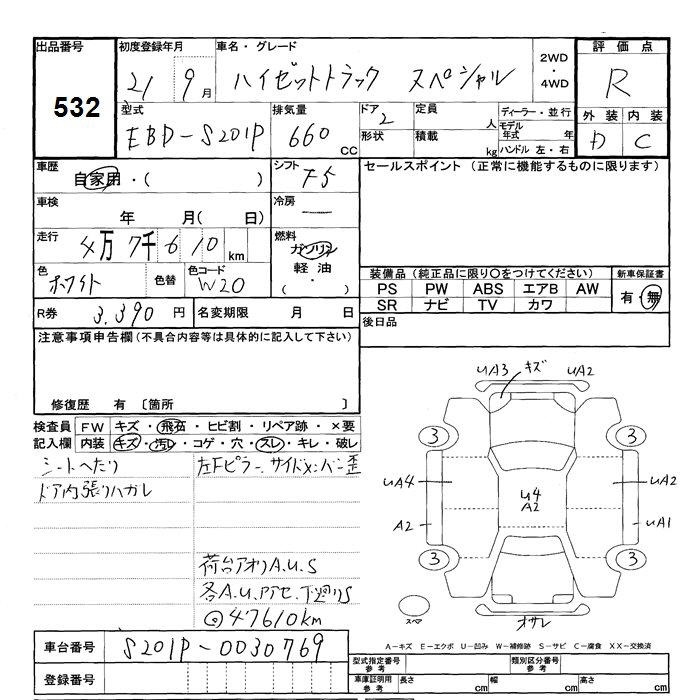 出品番号 初度登録年月 車名・グレード 2WD・4WD 評価点
532 21 9月 ハイゼットトラック スペシャル R
型式 排気量 ドア 定員 ディーラー・並行 外装 内装
EBD-S201P 660 CC 2 形状 人 積載 kg モデル年式 年 ハンドル 左・右 D C
車歴 シフト セールスポイント (正常に機能するものに限ります)
自家用・( ) F5
車検 冷房
年 月( 日) ―
走行 燃料
4万7千610km ガソリン
色 色替 色コード 軽油
ホワイト W20 ( ・ )
装備品(純正品に限り○をつけてください) 新車保証書
PS PW ABS エアB AW 有・無
SR ナビ TV カワ
R券 3,390円 名変期限 月 日 後日品
注意事項申告欄(不具合内容等は具体的に記入して下さい)
修復歴 有 〔箇所 〕
検査員 FW キズ・飛石・ヒビ割・リペア跡・×要
記入欄 内装 キズ・汚レ・コゲ・穴・スレ・キレ・破レ
シートヘたり 左Fピラー、サイドメンバー歪
ドア内張りハガレ
荷台アオリA.U.S
各A.U.アテセ、下廻りS
@47610km
UA3 キズ UA2
3 3
UA4 U4 UA2
A2 A2 UA1
3 3
スペア オサレ
A-キズ E-エクボ U-凹み W-補修跡 S-サビ C-腐食 XX-交換済
車台番号 S201P-0030769
登録番号
型式指定番号 参考 類別区分番号 参考
車庫証明用 参考 長さ cm 幅 cm 高さ cm